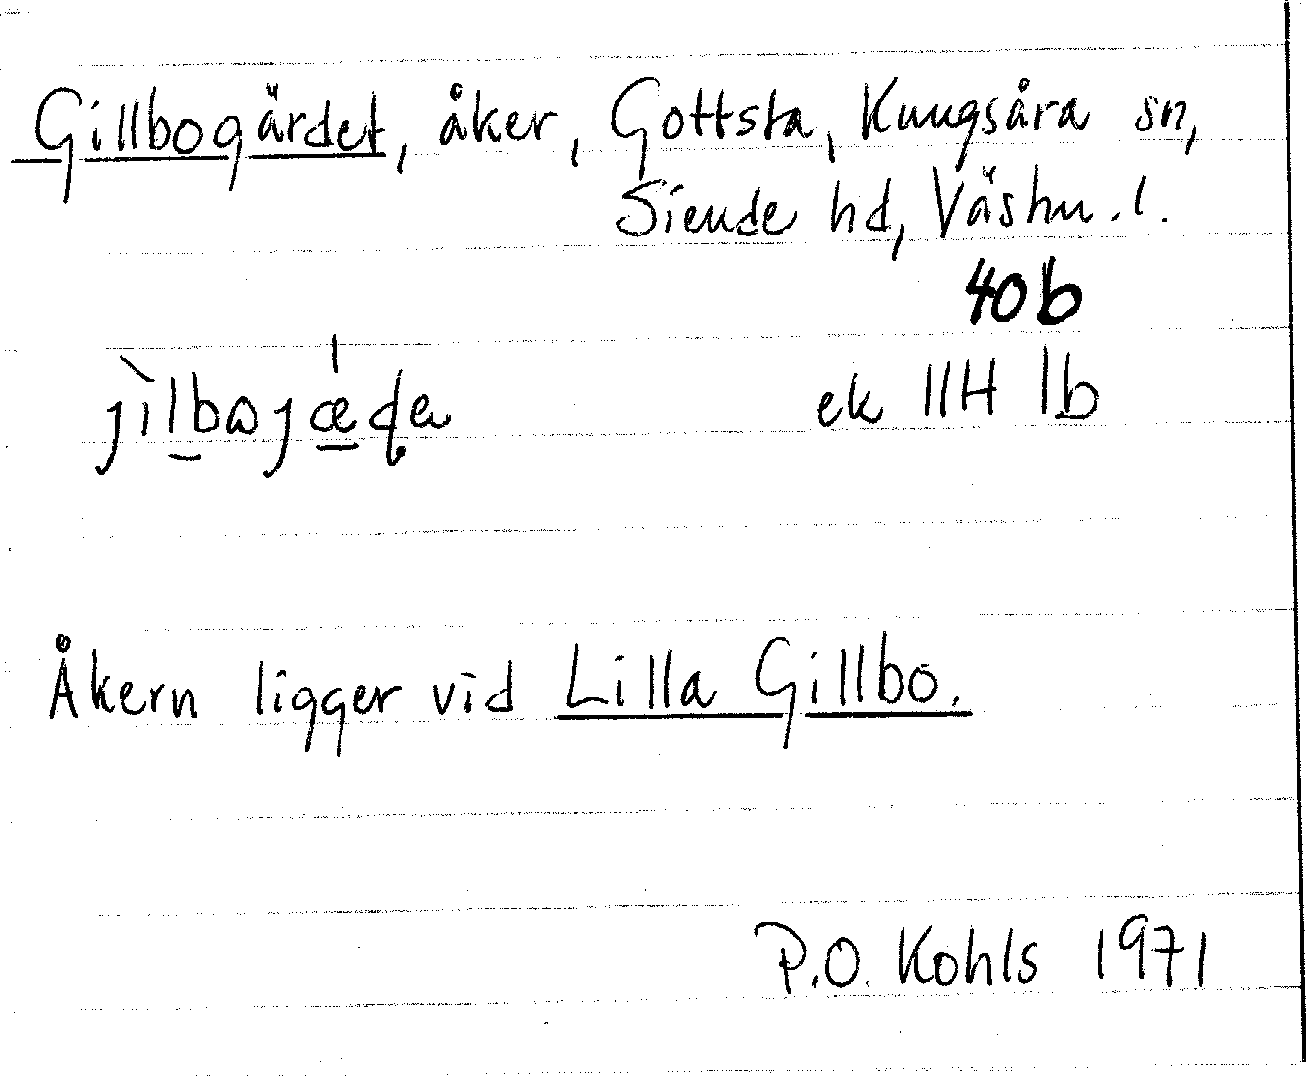 Gillbogärdet, åker, Gottsta, Kungsåra sn,
Siende hd, Västm. l.
40b
jìlbojæ̍ɖa ek 11H 1b
Åkern ligger vid Lilla Gillbo.
P.O. Kohls 1971